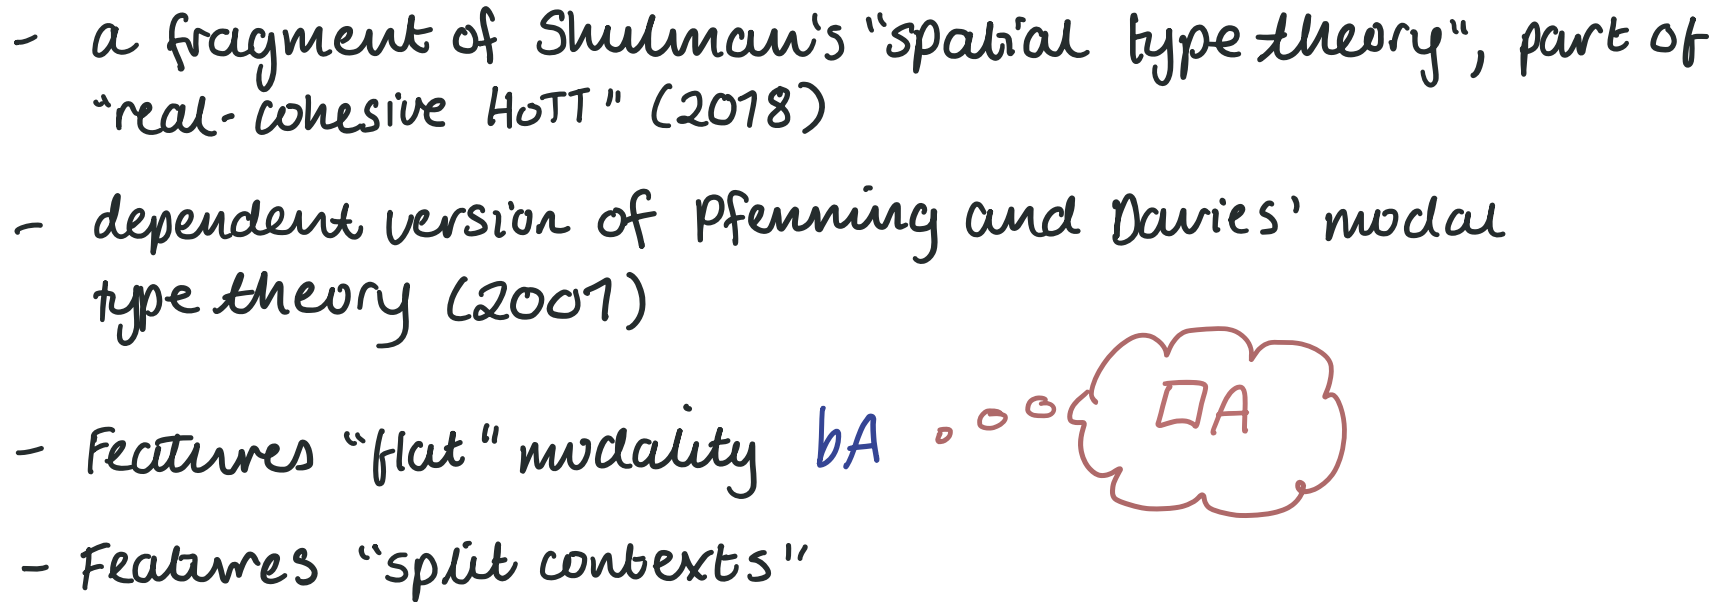 - a fragment of Shulman's "spatial type theory", part of
"real-cohesive HoTT" (2018)
- dependent version of Pfenning and Davies' modal
type theory (2001)
- Features "flat" modality ♭A □A
- Features "split contexts"